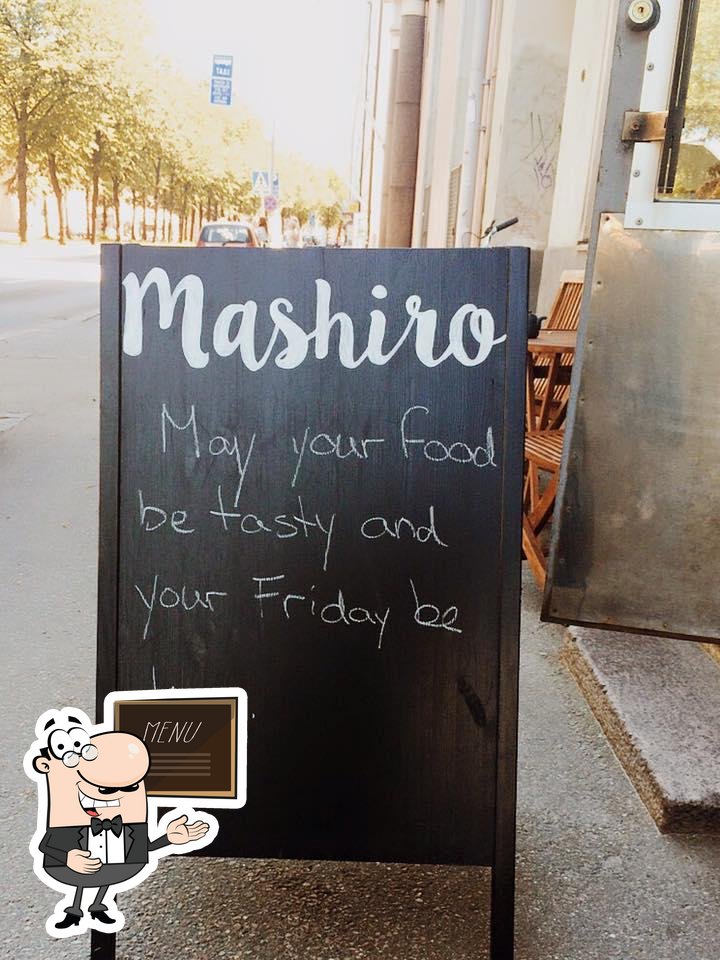 TAXI
Mashiro
May your food
be tasty and
your Friday be
MENU